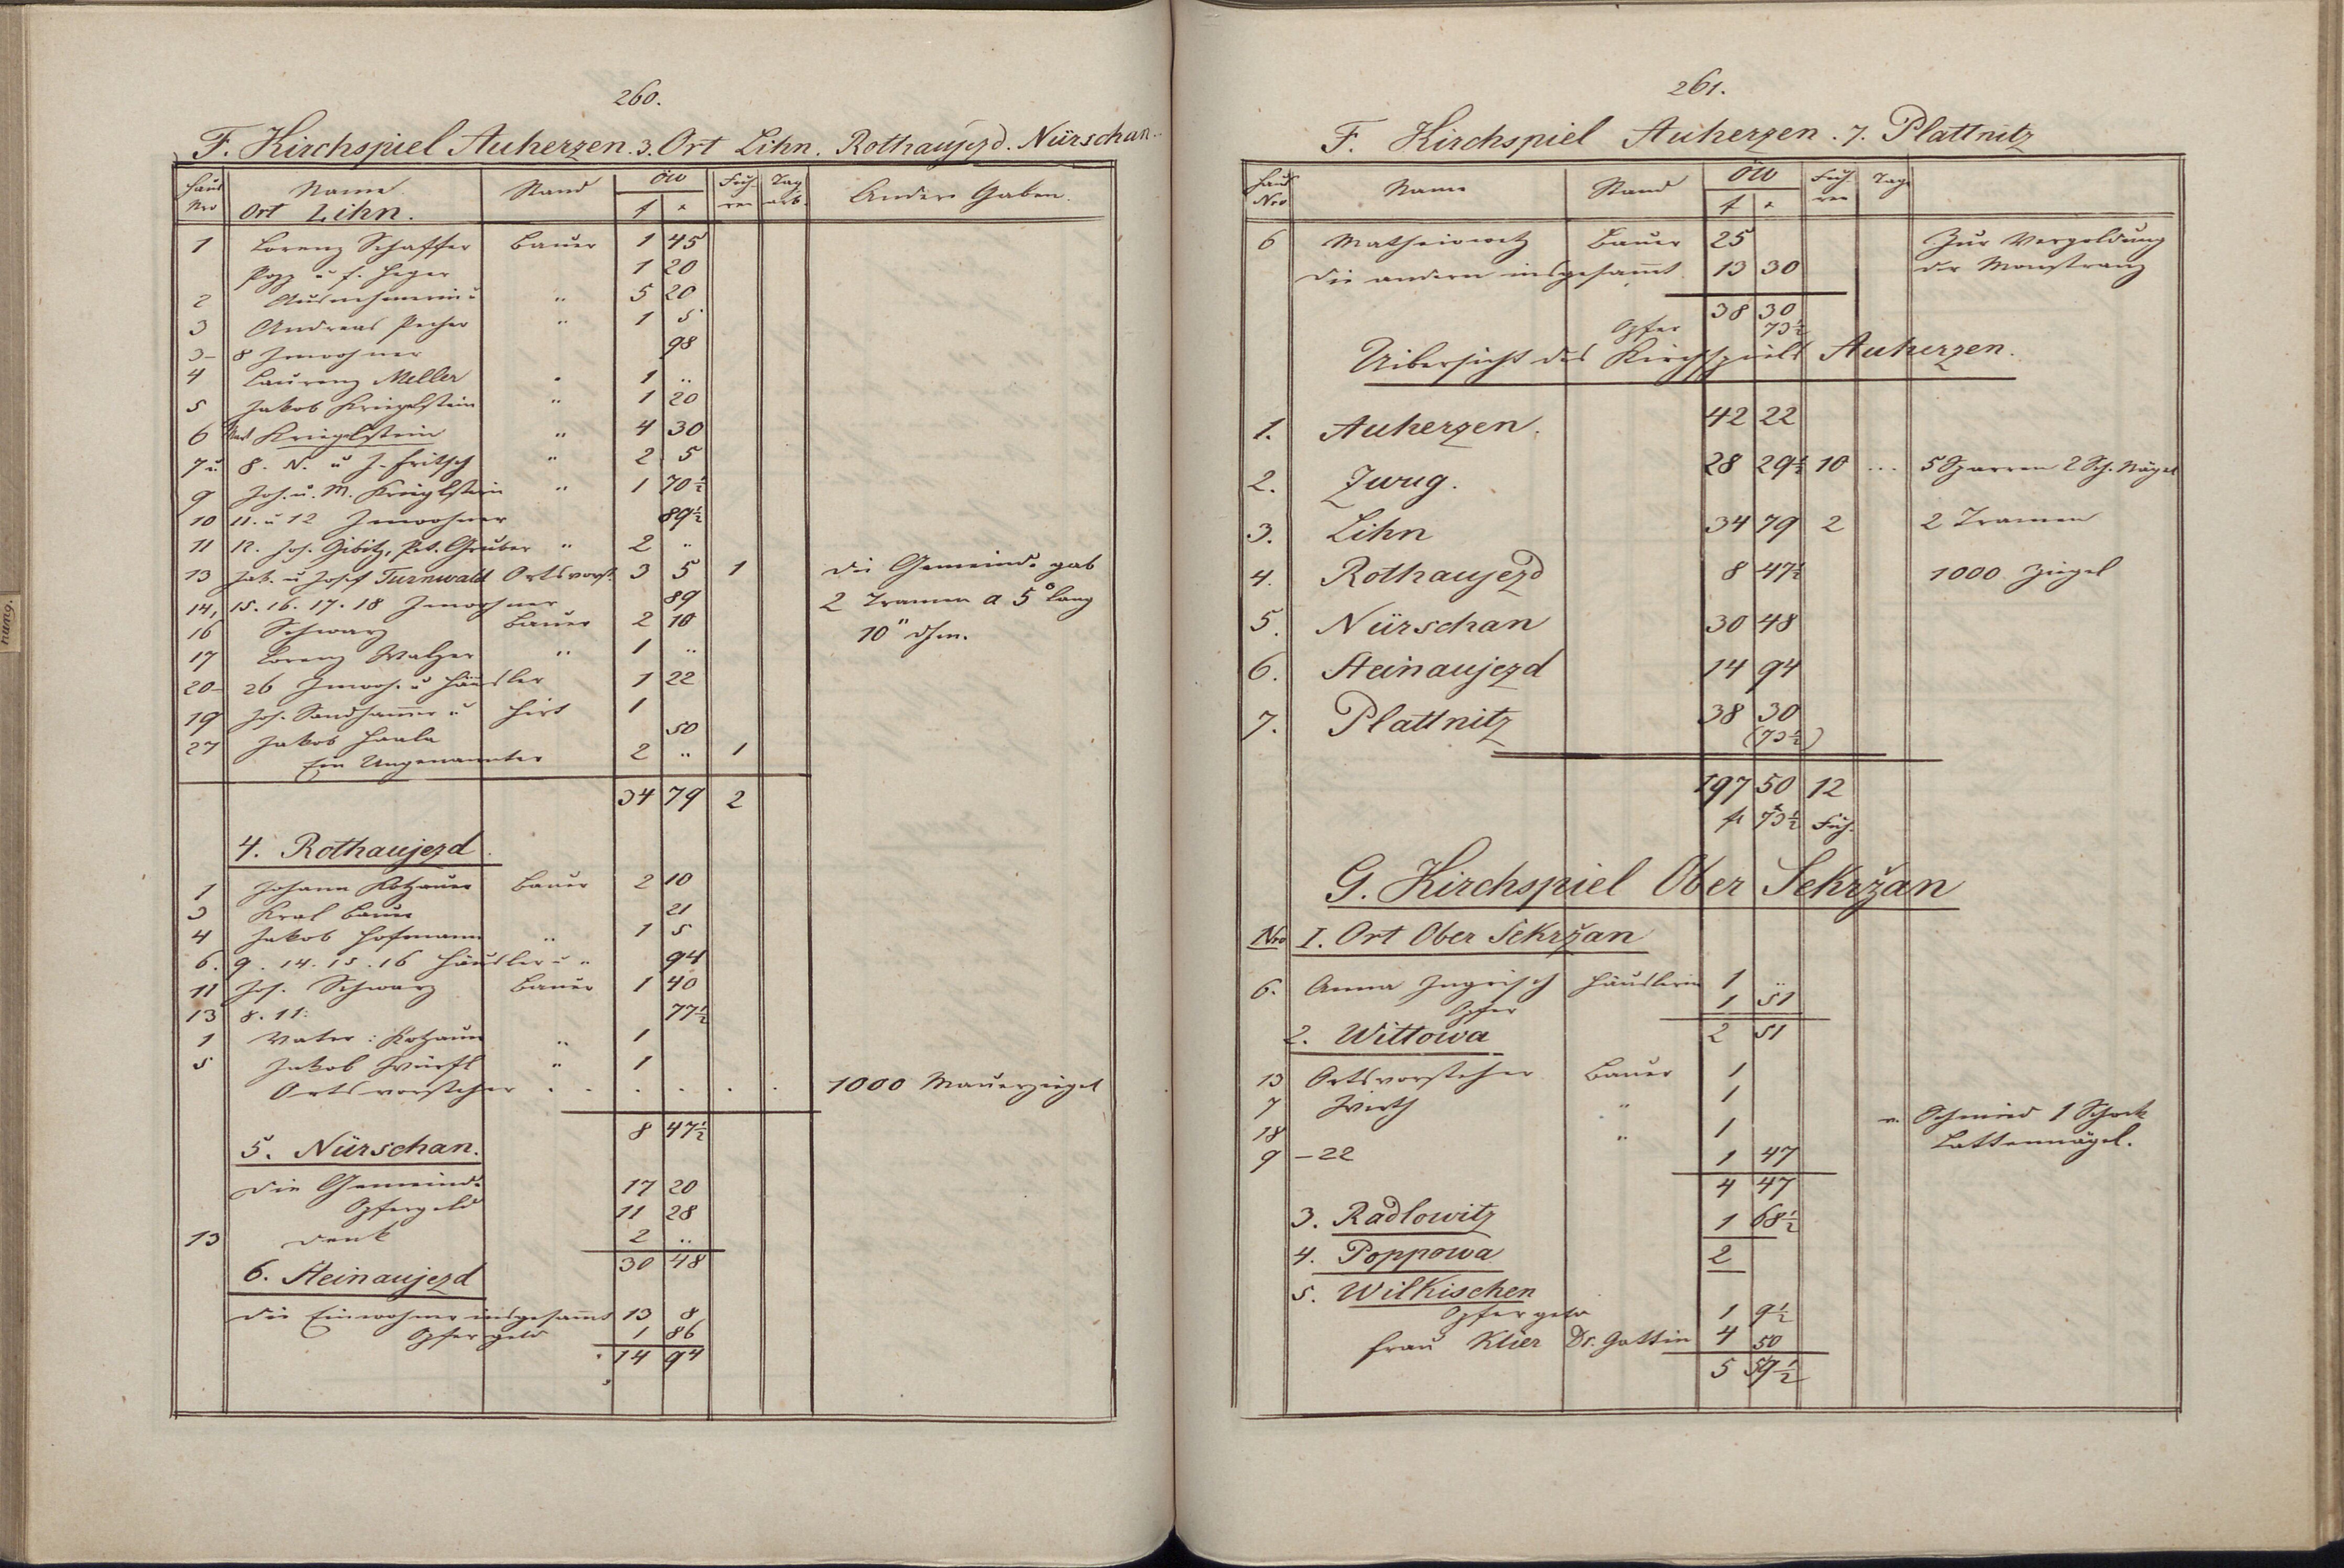 260.
F. Kirchspiel Auherzen. 3. Ort Lihn. Rothaujezd. Nürschan.
Haus Nro Name Stand ÖW Fuhren Tag arb. Andere Gaben.
Ort Lihn. f x
1 Lorenz Schaffer Bauer 1 45
Popp u. f. Heger 1 20
2 Ausnehmerin " 5 20
3 Andreas Pecher " 1 5
3– 8 Inwohner 98
4 Laurenz Meller " 1 ..
5 Jakob Kriegelstein " 1 20
6 Kriegelstein " 4 30
7 u. 8. N. u J. Fritsch " 2 5
9 Joh. u. M. Krieglstein " 1 70½
10 11. u 12 Inwohner 89½
11 12. Joh. Gibitz, Pet. Gruber " 2 ..
13 Jak. u Josef Turnwald Ortsvorst. 3 5 1 die Gemeinde gab
14, 15. 16. 17. 18 Inwohner 89 2 Tramen a 5° lang
16 Schwarz Bauer 2 10 10" dhm.
17 Lorenz Walzer " 1 ..
20– 26 Inwoh. u Häusler 1 22
19 Joh. Sandhammer u Hirt 1
27 Jakob Haala 50
Ein Ungenannter 2 .. 1
34 79 2
4. Rothaujezd.
1 Johann Kotzauer Bauer 2 10
3 Kral Bauer 21
4 Jakob Hofmann " 1 5
6. 9. 14. 15. 16 Häusler u " 94
11 Jos. Schwarz Bauer 1 40
13 8. 11: 77½
1 Vater: Kotzauer " 1
5 Jakob Würfl " 1
Ortsvorsteher . . . . . . 1000 Mauerziegel
8 47½
5. Nürschan.
Die Gemeinde 17 20
Opfergeld 11 28
13 Denk 2 ..
30 48
6. Steinaujezd
Die Einwohner insgesammt 13 8
Opfergeld 1 86
14 94
261.
F. Kirchspiel Auherzen. 7. Plattnitz
Haus Nro Name Stand ÖW Fuhren Tag
f x
6 Matheiowetz Bauer 25 Zur Vergoldung
die andern insgesammt 13 30 der Monstranz
38 30
Opfer 73½
Uibersicht des Kirchspiels Auherzen.
1. Auherzen. 42 22
2. Zwug. 28 29½ 10 ... 5 Sparren 2 Sch. Nägel
3. Lihn 34 79 2 2 Tramen
4. Rothaujezd 8 47½ 1000 Ziegel
5. Nürschan 30 48
6. Steinaujezd 14 94
7. Plattnitz 38 30
(73½)
197 50 12
fl 73½ Fuh.
G. Kirchspiel Ober Sekržan
Nro I. Ort Ober Sekržan
6. Anna Ingrisch Häuslerin 1 ..
Opfer 1 51
2. Wittowa 2 51
13 Ortsvorsteher Bauer 1
7 Wirth " 1
18 " 1 v. Schmied 1 Schock
9 – 22 1 47 Lattennägel.
4 47
3. Radlowitz 1 68½
4. Poppowa 2
5. Wilkischen
Opfergeld 1 9½
Frau Klier Dr. Gattin 4 50
5 59½